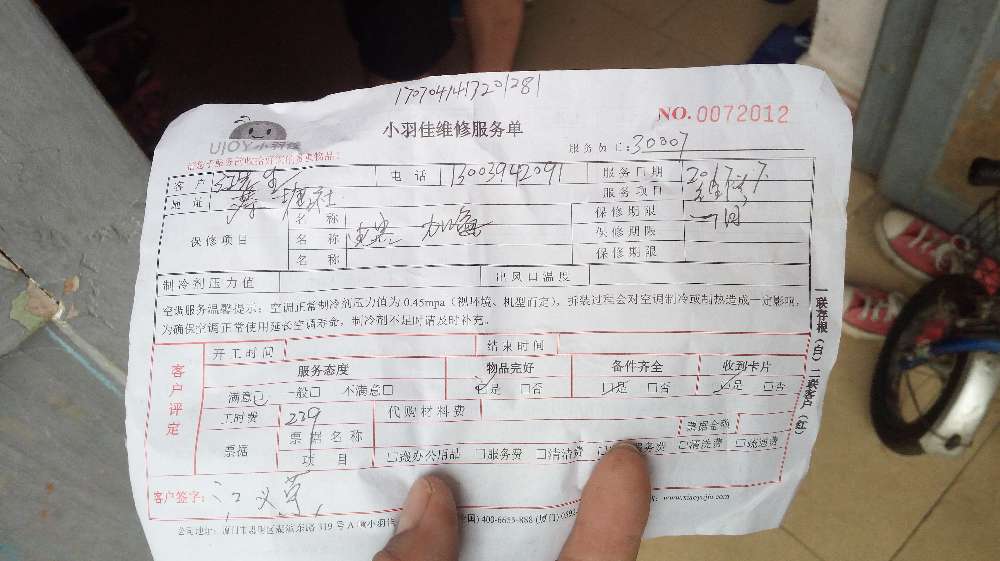 17070414173201281
NO.0072012
UJOY小羽佳
小羽佳维修服务单
服务员工:30007
客户 电话 13003942091 服务日期
地址 服务项目
保修项目 名称 保修期限 一周
名称 加 保修期限
名称 保修期限
制冷剂压力值 出风口温度
空调服务温馨提示:空调正常制冷剂压力值为0.45mpa(视环境、机型而定),拆装过程会对空调制冷或制热造成一定影响,
为确保空调正常使用延长空调寿命,制冷剂不足时请及时补充。
客户评定
开工时间 结束时间
服务态度 物品完好 备件齐全 收到卡片
满意 一般□ 不满意□ 是 □否 是 □否 是 □否
工时费 239 代购材料费
票据 票据名称 票据金额
项目 □或办公用品 □服务费 □清洁费 服务费 □清洗费 □疏通费
客户签字:
公司地址:厦门市思明区湖滨东路319号A 400-6655-888(厦门)
一联存根(白)二联客户(红)